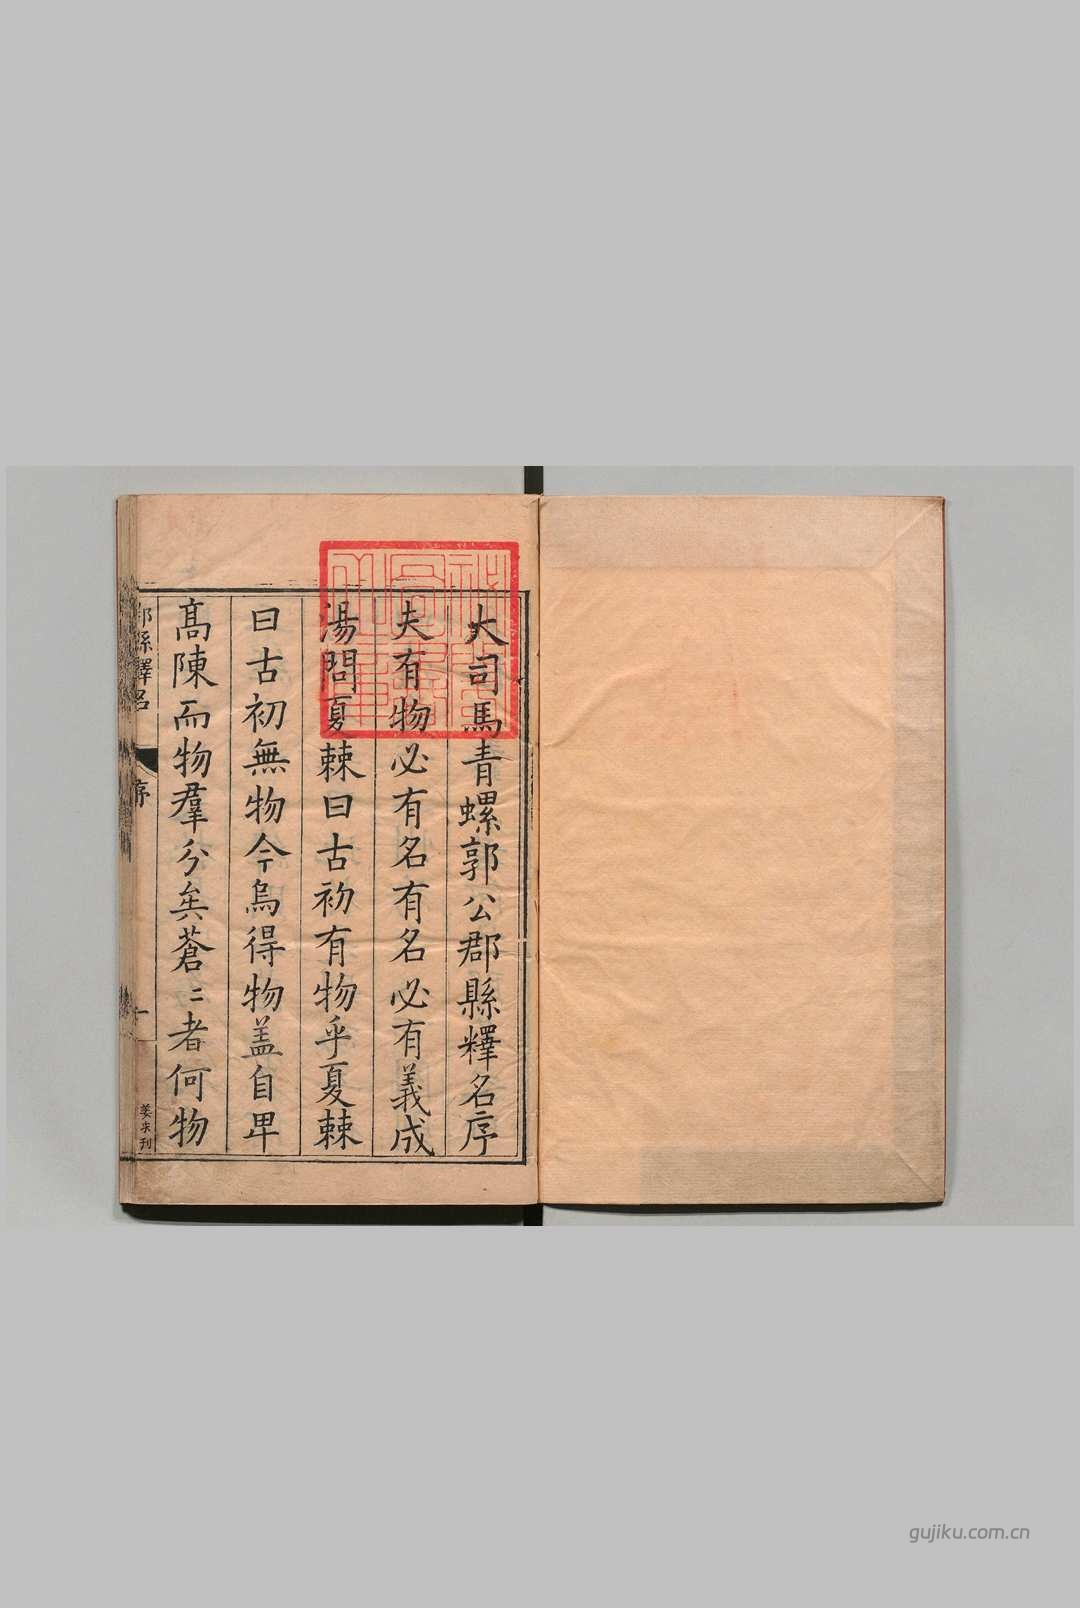 大司馬青螺郭公郡縣釋名序
夫有物必有名有名必有義成
湯問夏棘曰古初有物乎夏棘
曰古初無物今烏得物盖自卑
高陳而物羣分矣蒼〻者何物
郡縣釋名
序
一
姜来刊
gujiku.com.cn